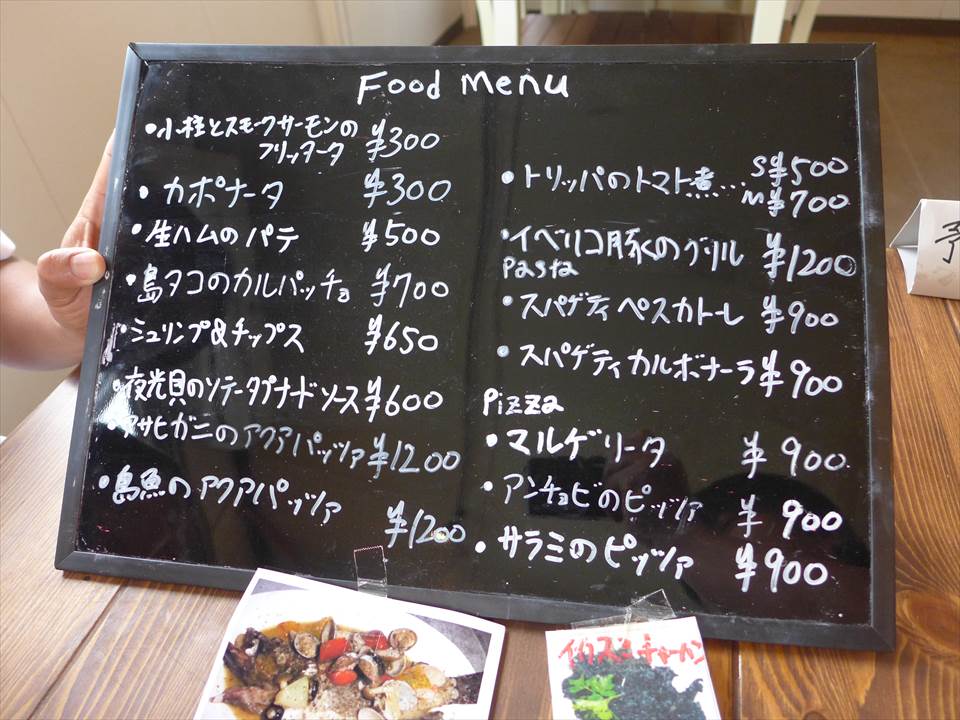 Food Menu
・小柱とスモークサーモンの
フリッタータ ¥300
・カポナータ ¥300
・生ハムのパテ ¥500
・島タコのカルパッチョ ¥700
・シュリンプ&チップス ¥650
・夜光貝のソテータプナードソース ¥600
・アサヒガニのアクアパッツァ ¥1200
・島魚のアクアパッツァ
¥1200
・トリッパのトマト煮… S¥500
M¥700
・イベリコ豚のグリル ¥1200
Pasta
・スパゲティ ペスカトーレ ¥900
・スパゲティ カルボナーラ ¥900
Pizza
・マルゲリータ ¥900
・アンチョビのピッツァ ¥900
・サラミのピッツァ ¥900
予